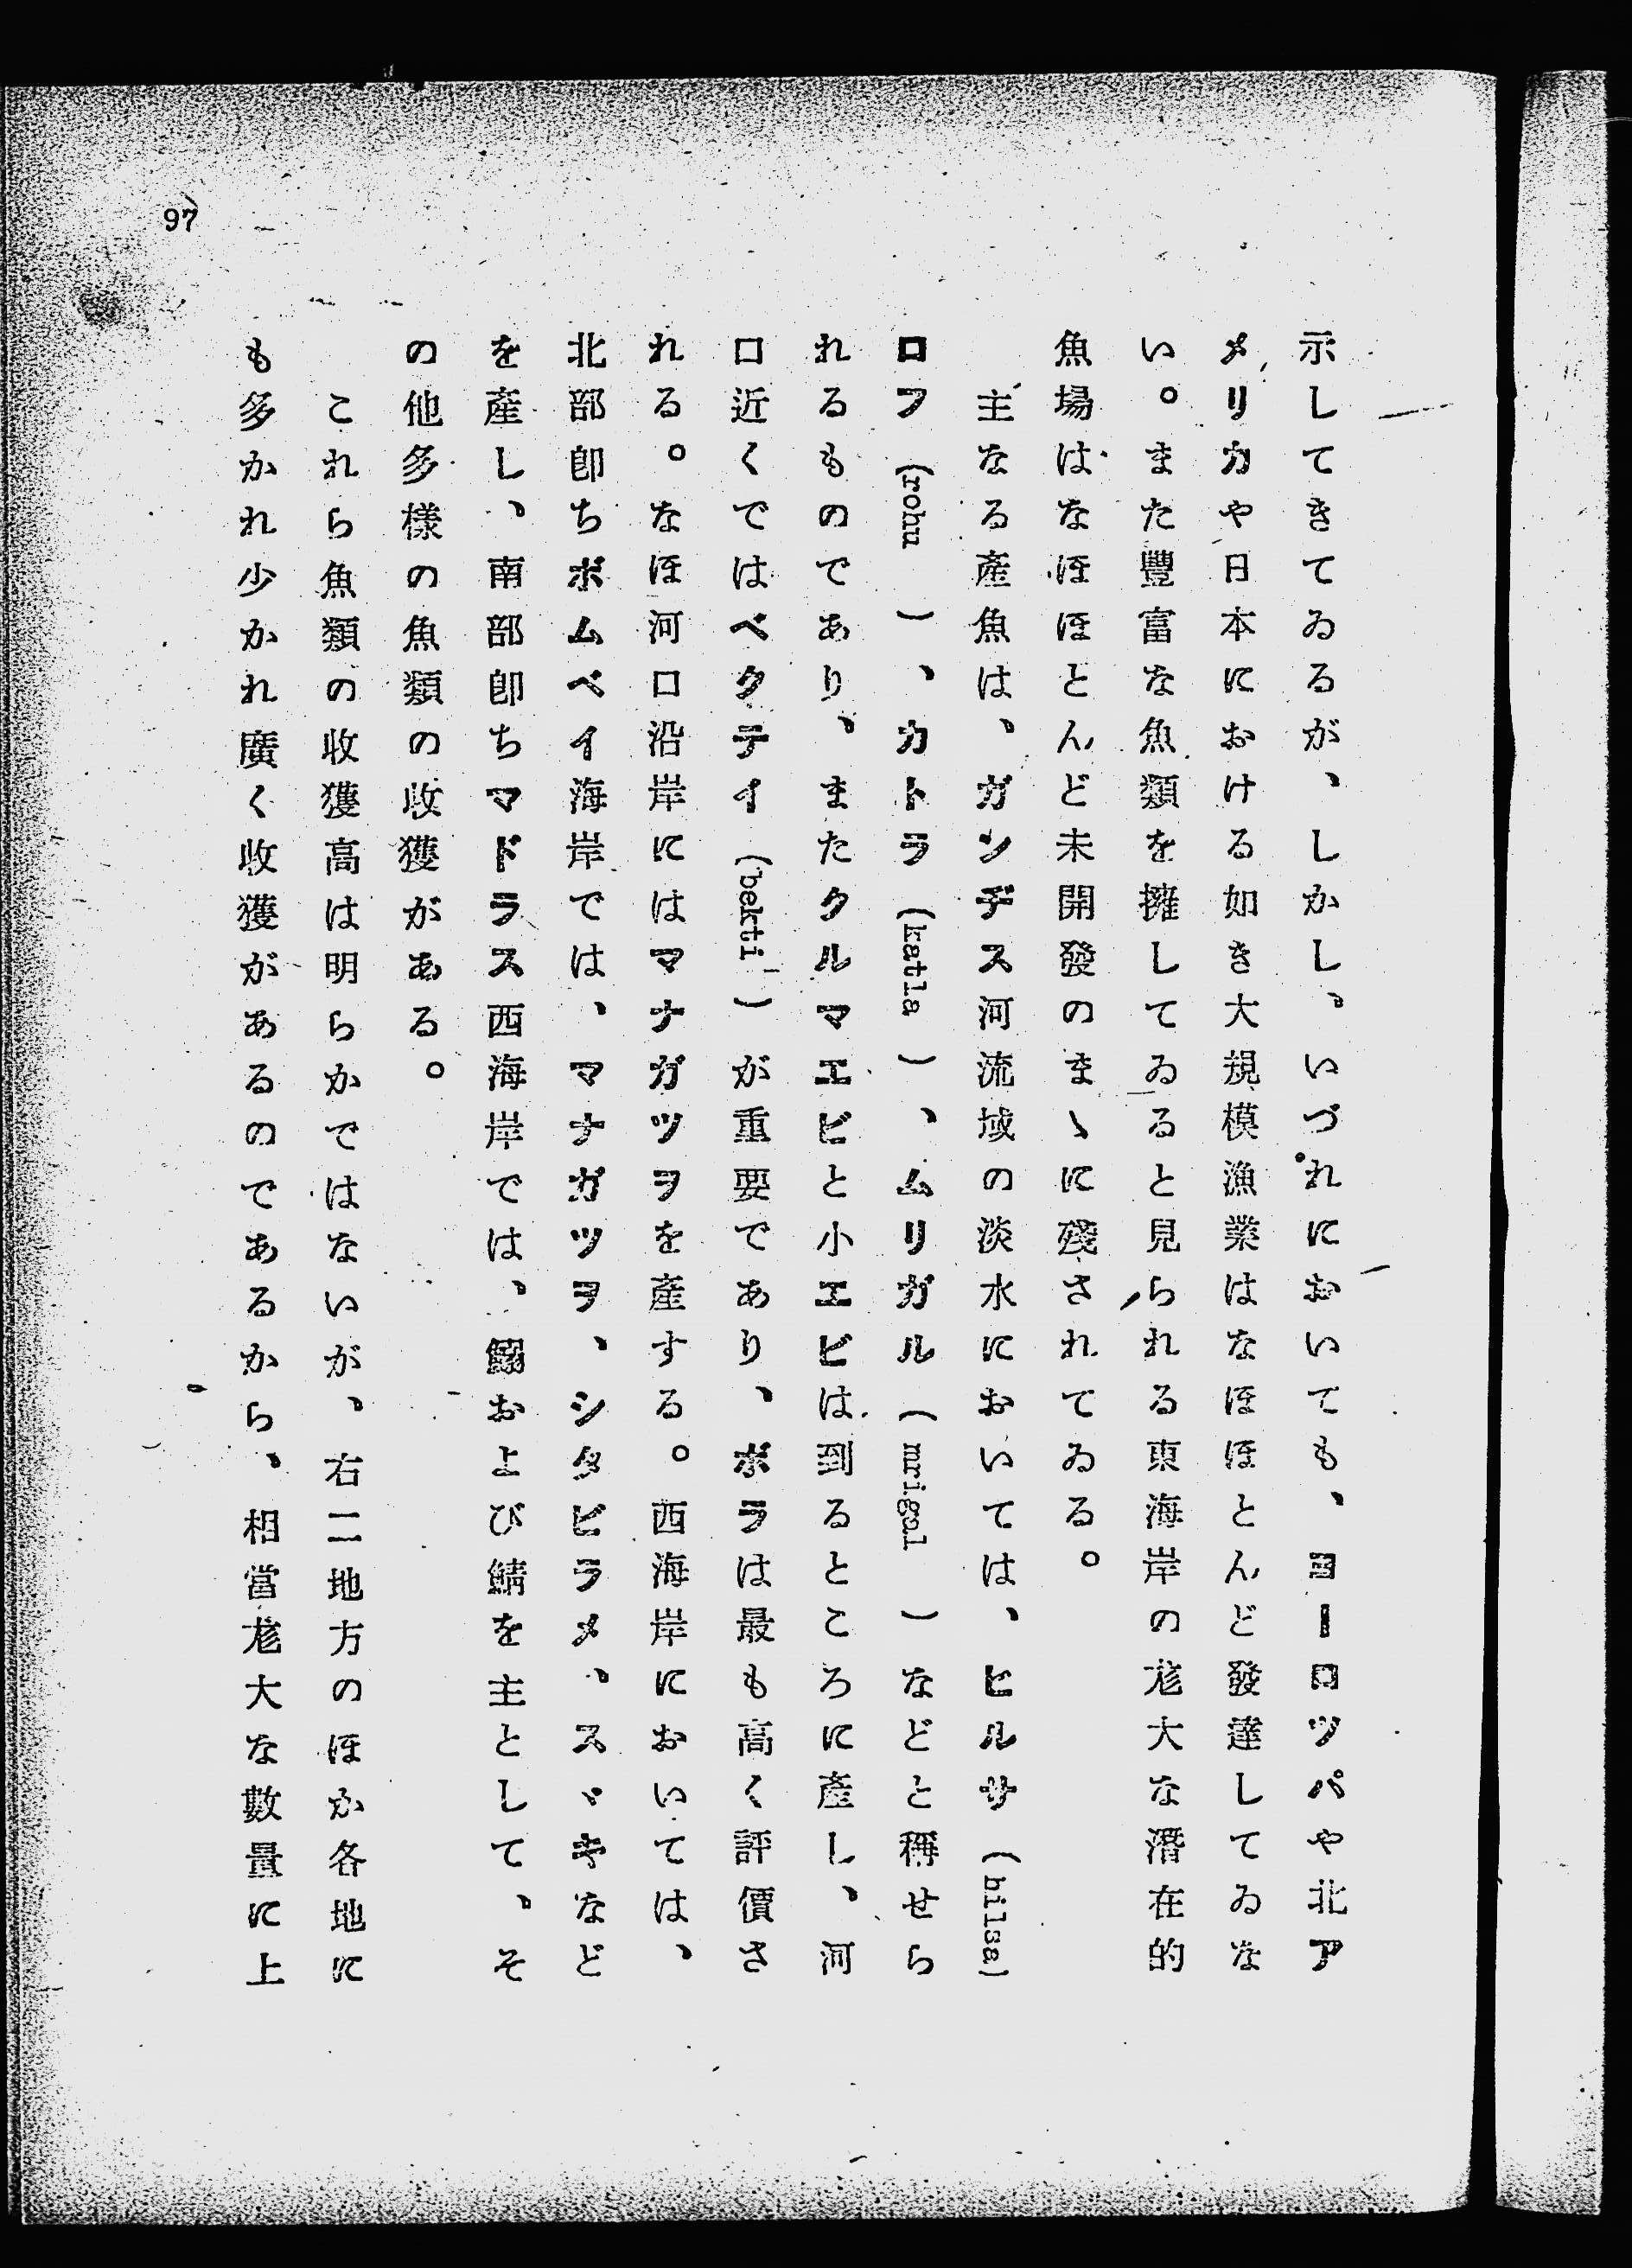 示してきてゐるが、しかし、いづれにおいても、ヨーロツパや北ア
メリカや日本における如き大規模漁業はなほほとんど發達してゐな
い。また豐富な魚類を擁してゐると見られる東海岸の尨大な潛在的
魚場はなほほとんど未開發のまゝに殘されてゐる。
主なる產魚は、ガンヂス河流域の淡水においては、ヒルサ(hilsa)
ロフ(rohu)、カトラ(katla)、ムリガル(mrigal)などと稱せら
れるものであり、またクルマエビと小エビは到るところに產し、河
口近くではベクテイ(bekti)が重要であり、ボラは最も高く評價さ
れる。なほ河口沿岸にはマナガツヲを產する。西海岸においては、
北部卽ちボムベイ海岸では、マナガツヲ、シタビラメ、スヾキなど
を產し、南部卽ちマドラス西海岸では、鰯および鯖を主として、そ
の他多樣の魚類の收獲がある。
これら魚類の收獲高は明らかではないが、右二地方のほか各地に
も多かれ少かれ廣く收獲があるのであるから、相當尨大な數量に上
97